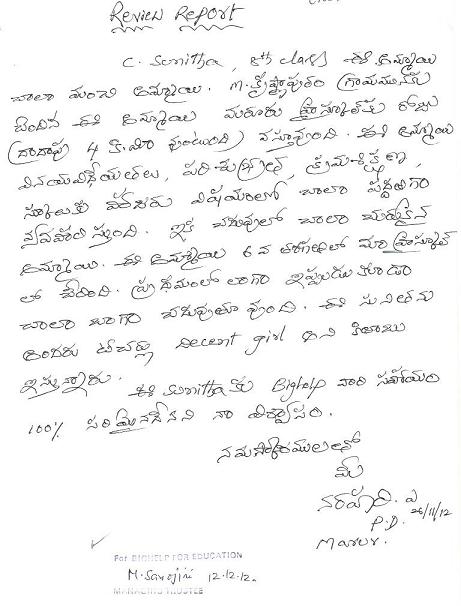 Review Report
C. Sunitha, 8th class ఈ అమ్మాయి
చాలా మంచి అమ్మాయి. M. కృష్ణాపురం గ్రామమునకు
చెందిన ఈ అమ్మాయి మరూరు హైస్కూల్‌కు రోజు
(దాదాపు 4 కి.మీ వుంటుంది) వస్తూవుంది. ఈ అమ్మాయి
వినయవిధేయతలు, పరిశుభ్రత, క్రమశిక్షణ,
స్కూలుకు హాజరు విషయంలో చాలా పద్ధతిగా
వ్యవహరిస్తుంది. ఇక చదువులో చాలా చురుకైన
అమ్మాయి. ఈ అమ్మాయి 6 వ తరగతిలో మా హైస్కూల్
లో చేరింది. ప్రథమంలో లాగా ఇప్పుడు కూడా
చాలా బాగా చదువుతూ వుంది. ఈ సునీతను
అందరు టీచర్లు Decent girl అని కితాబు
ఇస్తున్నారు.
ఈ Sunitha కు BigHelp వారి సహాయం
100% సరియైనదేనని నా విశ్వాసం.
నమస్కారములతో
మీ
నరహరి. ఎ
26/11/12
P.D.
Marur.
For BIGHELP FOR EDUCATION
M. Sarojini 12.12.12.
MANAGING TRUSTEE